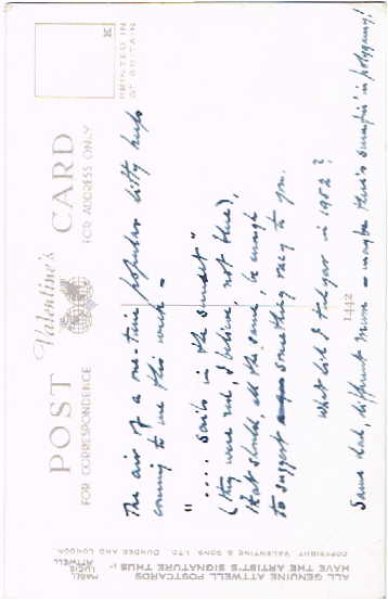 POST CARD
Valentine's
FOR CORRESPONDENCE
FOR ADDRESS ONLY
PRINTED IN
GT BRITAIN
The air of a one-time popular ditty keeps
coming to me this week –
" .... sails in the sunset "
(they were red, I believe, not blue),
that should, all the same, be enough
to suggest something racy to you.
What did I tell you in 1952?
Same lad, different Muse – maybe there's sumpin' in polygamy!
1442
ALL GENUINE ATTWELL POSTCARDS
HAVE THE ARTIST'S SIGNATURE THUS :-
MABEL
LUCIE
ATTWELL
COPYRIGHT VALENTINE & SONS LTD. DUNDEE AND LONDON